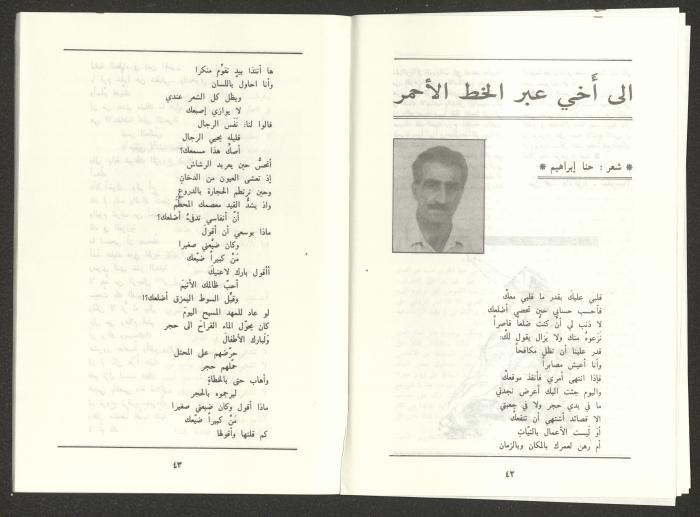 الى أَخي عبر الخط الأحمر
* شعر : حنا إبراهيم *
قلبي عليكَ بقدر ما قلبي معكْ
فأحسب حسابي حين تحصي أضلعك
لا ذنب لي أنْ كنتُ ضلعاً قاصراً
نَزَعوهُ منك ولا يَزال يقول لكْ:
قدر علينا أن نظل مكافحاً
وأنا أعيش مصابراً
فإذا انتهى أمري فأنفذ موقعكْ
واليوم جئت اليك أعرض نجدتي
ما في يدي حجر ولا في جعبتي
الا قصائد أشتهي أن تنفعكْ
أوَ ليست الأعمال بالنيّات
أم رهن لعمرك بالمكان وبالزمان
٤٢
ها أنتذا بيدٍ تقوِّم منكرا
وأنا احاول باللسان
ويظل كل الشعر عندي
لا يوازي إصبعك
قالوا لنا: نَفَس الرجال
قليله يحيي الرجال
أصكَّ هذا مسمعك؟
أتحسُّ حين يعربد الرشاش
إذ تعشى العيون من الدخان
وحين ترتطم الحجارة بالدروع
واذ يشدُّ القيد معصمك المحطَّم
أنّ أنفاسي تدفىءُ أضلعك؟
ماذا بوسعي أن أقولَ
وكان ضيَّعني صغيرا
مَنْ كبيراً ضيّعك
أأقول بارك لاعنيكَ
أحبّ ظالمك الأثيمَ
وقبِّل السوط اليمزق أضلعك؟!
لو عاد للمهد المسيح اليومَ
كان يحوّل الماء القراحَ الى حجر
ولَبارك الأطفالَ
حرّضهم على المحتل
حمّلهم حجر
وأهاب حتى بالخطاةِ
ليرجموه بالحجر
ماذا أقول وكان ضيعني صغيرا
مَنْ كبيراً ضيّعك
كم قلتها وأقولها
٤٣